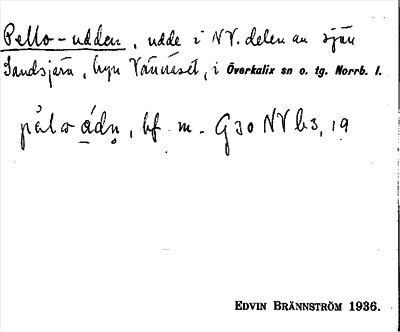 Pello-udden, udde i NV. delen av sjön
Sandsjärn, byn Vännäset, i Överkalix sn o. tg. Norrb. l.
pålo ádn, bf. m. G30 NV b3, 19
EDVIN BRÄNNSTRÖM 1936.